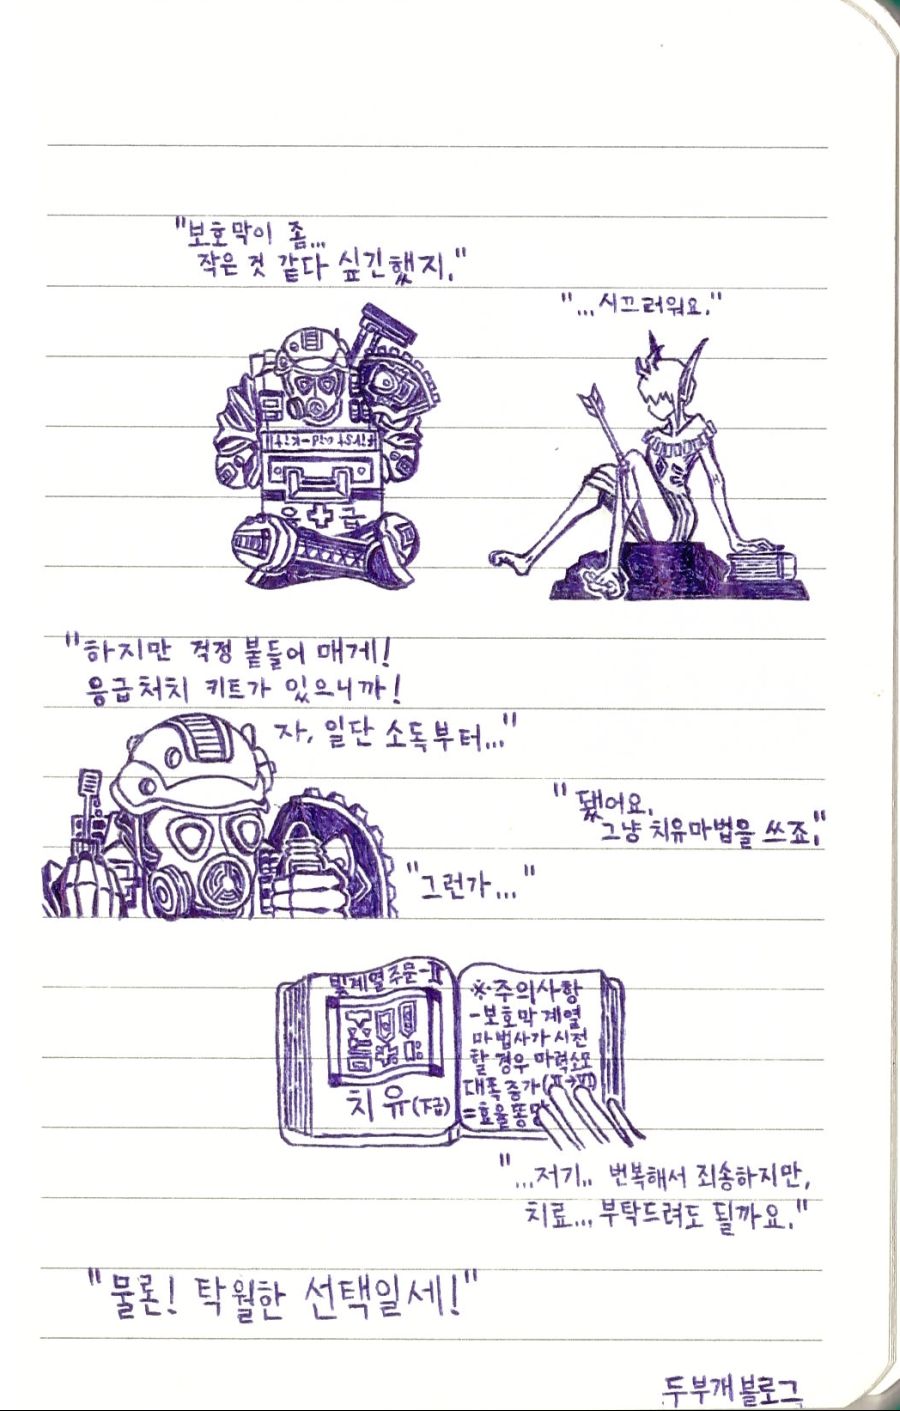 "보호막이 좀...
작은 것 같다 싶긴했지."
"...시끄러워요."
first aid-kit
응+급
"하지만 걱정 붙들어 매게!
응급처치 키트가 있으니까!
자, 일단 소독부터..."
"됐어요.
그냥 치유마법을 쓰죠."
"그런가..."
빛계열주문-Ⅱ
치유(下급)
※주의사항
-보호막 계열
마법사가 시전
할 경우 마력소모
대폭 증가(Ⅱ→Ⅵ)
=효율똥망
"...저기.. 번복해서 죄송하지만,
치료... 부탁드려도 될까요."
"물론! 탁월한 선택일세!"
두부개블로그